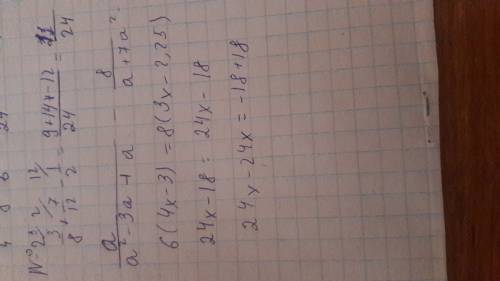 4 8 6 24
№2
3/8 + 7/12 - 1/2 = 9+14-12/24 = 11/24
a/a²-3a+a - 8/a+7a².
6(4x-3) = 8(3x-2,25)
24x-18 = 24x-18
24x-24x = -18+18